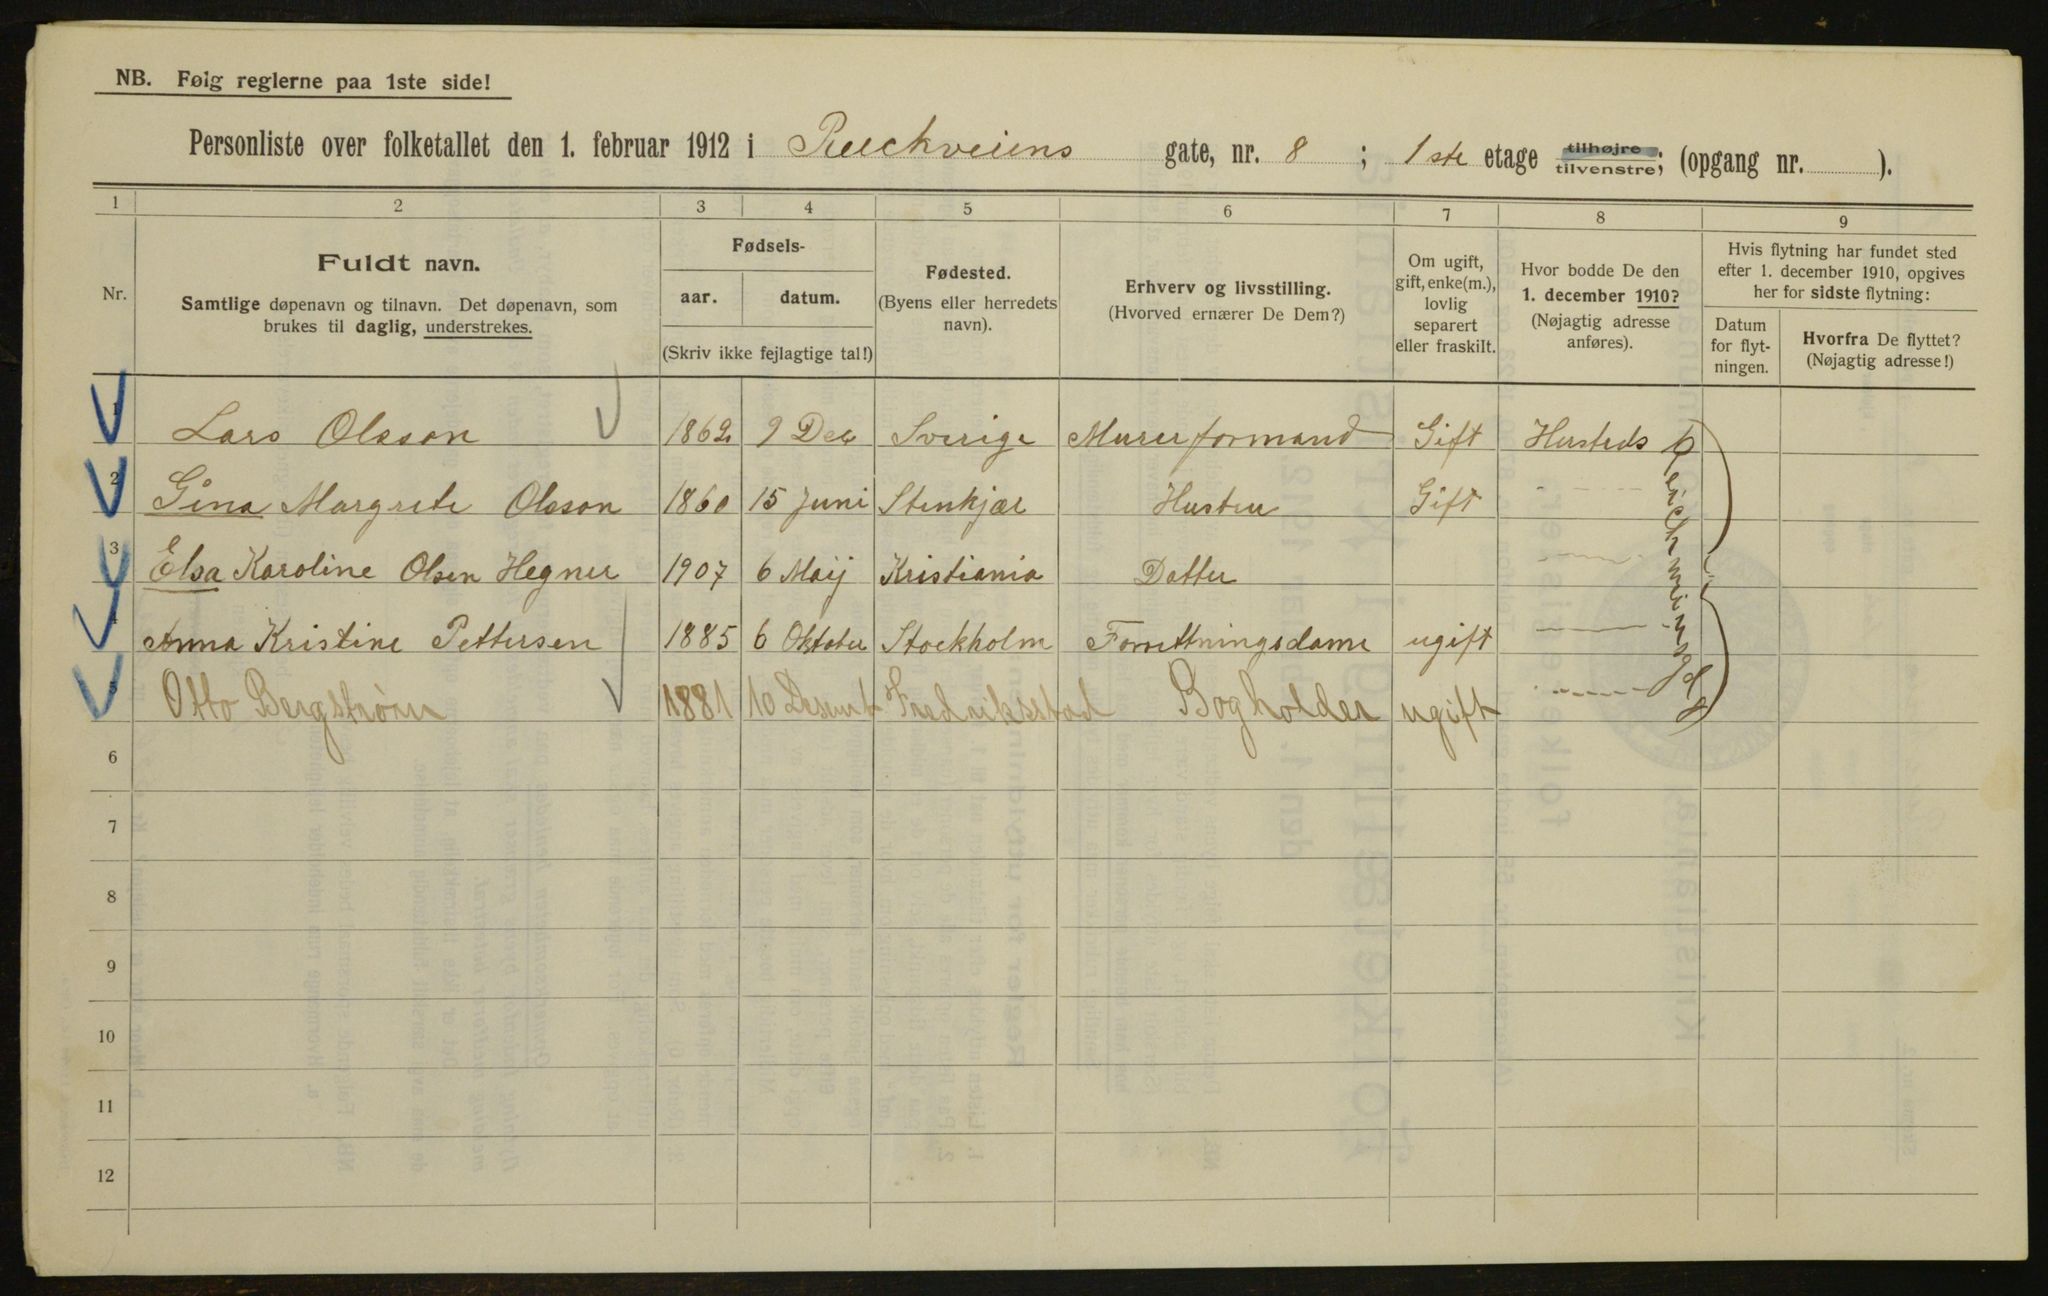 NB. Følg reglerne paa 1ste side!
Personliste over folketallet den 1. februar 1912 i Rückveiens gate, nr. 8 ; 1ste etage tilhøjre tilvenstre; (opgang nr. ).
1 2 3 4 5 6 7 8 9
Nr.
Fuldt navn.
Samtlige døpenavn og tilnavn. Det døpenavn, som
brukes til daglig, understrekes.
Fødsels-
aar. datum.
(Skriv ikke fejlagtige tal!)
Fødested.
(Byens eller herredets
navn).
Erhverv og livsstilling.
(Hvorved ernærer De Dem?)
Om ugift,
gift, enke(m.),
lovlig
separert
eller fraskilt.
Hvor bodde De den
1. december 1910?
(Nøjagtig adresse
anføres).
Hvis flytning har fundet sted
efter 1. december 1910, opgives
her for sidste flytning:
Datum
for flyt-
ningen.
Hvorfra De flyttet?
(Nøjagtig adresse!)
1 Lars Olsson 1862 9 Dec Sverige Murerformand Gift Husteds
2 Gina Margrete Olsson 1860 15 Juni Stenkjær Hustru Gift - - - -
3 Elsa Karoline Olsen Hegner 1907 6 Maij Kristiania Datter - - - -
4 Anna Kristine Pettersen 1885 6 Oktober Stockholm Forrettningsdame ugift - - - -
5 Otto Bergstrøm 1881 10 Desemb Fredriksstad Bogholder ugift - - - -
6
7
8
9
10
11
12